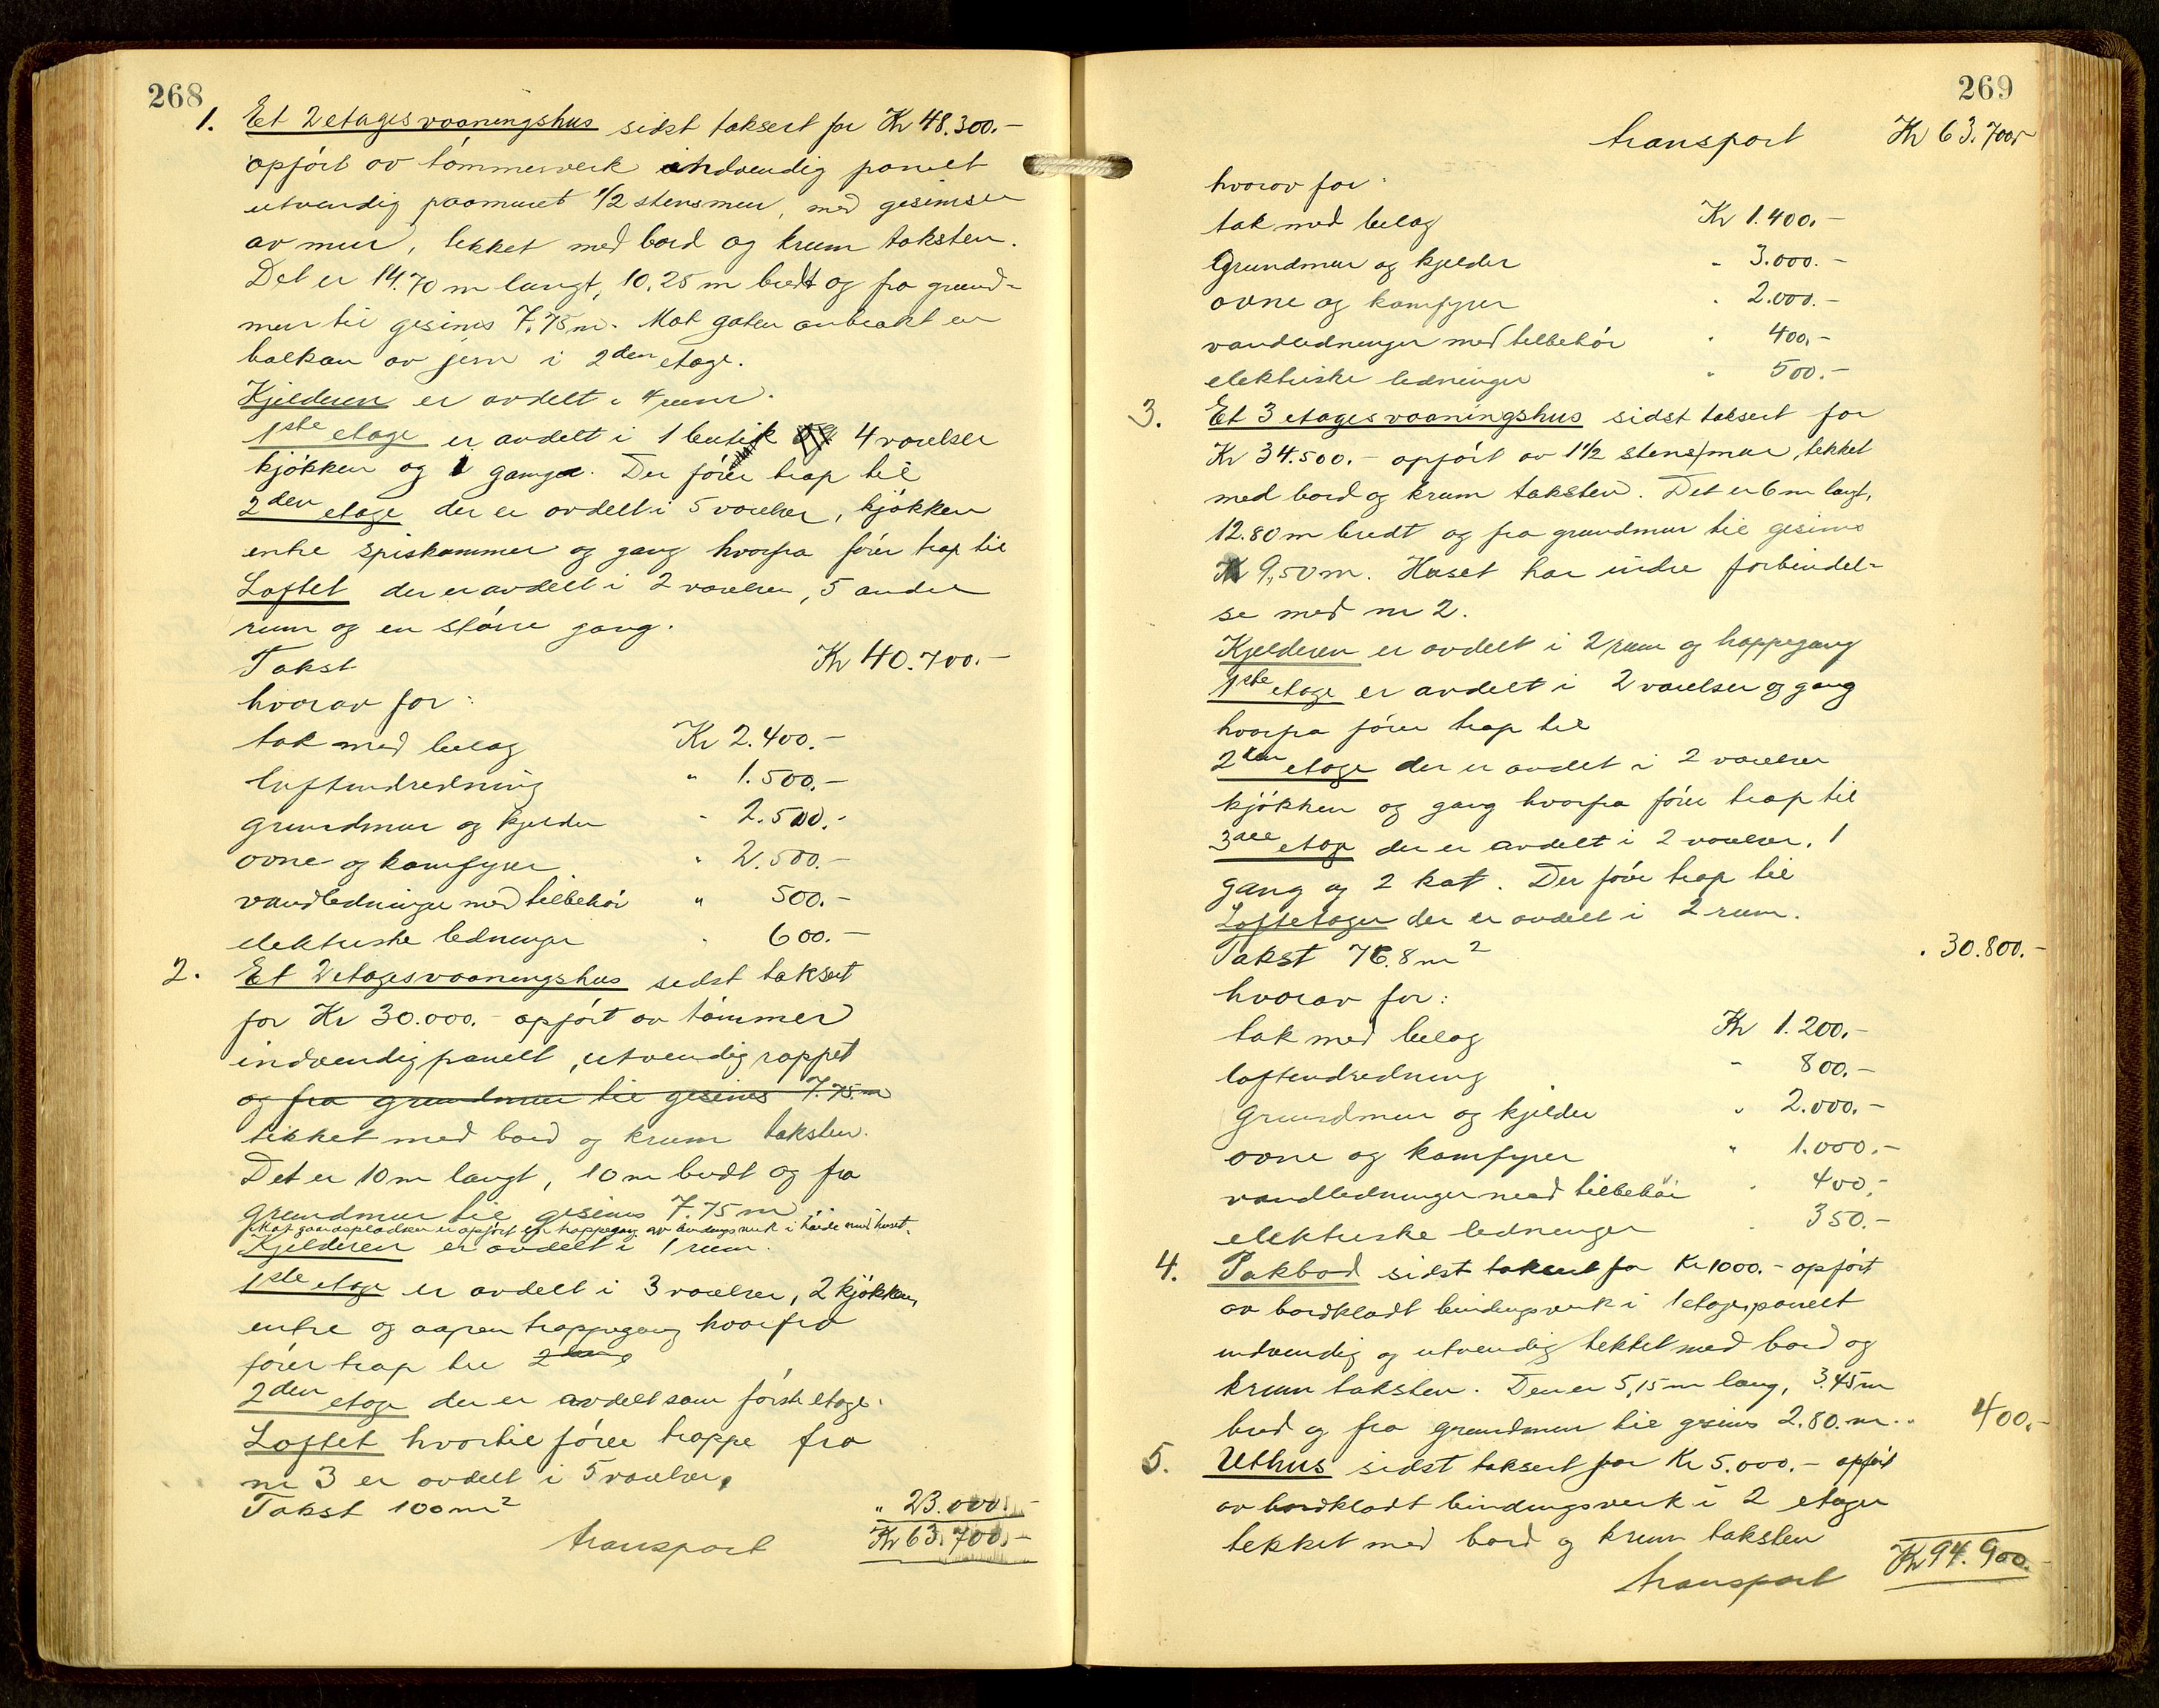 268
1. Et 2 etages vaaningshus sidst taksert for Kr 48.300.-
opført av tømmerverk indvendig panelt
utvendig paamuret 1/2 stensmur, med gesimser
av mur, tekket med bord og krum taksten.
Det er 14.70 m langt, 10.25 m bredt og fra grund-
mur til gesims 7.75 m. Mot gaten anbrakt en
balkon av jern i 2den etage.
Kjelderen er avdelt i 4 rum.
1ste etage er avdelt i 1 butik 4 værelser
kjøkken og 1 gang. Der fører trap til
2den etage der er avdelt i 5 værelser, kjøkken
entre spiskammer og gang hvorfra fører trap til
Loftet der er avdelt i 2 værelser, 5 andre
rum og en større gang.
Takst Kr 40.700.-
hvorav for:
tak med belag Kr 2.400.-
loftindredning " 1.500.-
grundmur og kjelder " 2.500.-
ovne og komfyrer " 2.500.-
vandledninger med tilbehør " 500.-
elektriske ledninger " 600.-
2. Et 2 etages vaaningshus sidst taksert
for Kr 30.000.- opført av tømmer
indvendig panelt, utvendig rappet
og fra grundmur til gesims 7.75 m
tekket med bord og krum taksten.
Det er 10 m langt, 10 m bredt og fra
grundmur til gesims 7.75 m.
Mot gaardspladsen er opført en trappegang av bindingsverk i høide med huset.
Kjelderen er avdelt i 1 rum.
1ste etage er avdelt i 3 værelser, 2 kjøkken,
entre og aapen trappegang hvorfra
fører trap til 2den
2den etage der er avdelt som første etage.
Loftet hvortil fører trappe fra
nr 3 er avdelt i 5 værelser,
Takst 100 m2 " 23.000.-
transport Kr 63.700.-
269
transport Kr 63.700.-
hvorav for:
tak med belag Kr 1.400.-
Grundmur og kjelder " 3.000.-
ovne og komfyrer " 2.000.-
vandledninger med tilbehør " 400.-
elektriske ledninger " 500.-
3. Et 3 etages vaaningshus sidst taksert for
Kr 34.500.- opført av 1 1/2 stens mur, tekket
med bord og krum taksten. Det er 6 m langt,
12.80 m bredt og fra grundmur til gesims
9,50 m. Huset har indre forbindel-
se med nr 2.
Kjelderen er avdelt i 2 rum og trappegang
1ste etage er avdelt i 2 værelser og gang
hvorfra fører trap til
2den etage der er avdelt i 2 værelser
kjøkken og gang hvorfra fører trap til
3die etage der er avdelt i 2 værelser, 1
gang og 2 kot. Der fører trap til
Loftetagen der er avdelt i 2 rum.
Takst 76.8 m2 " 30.800.-
hvorav for:
tak med belag Kr 1.200.-
loftindredning " 800.-
Grundmur og kjelder " 2.000.-
ovne og komfyrer " 1.000.-
vandledninger med tilbehør " 400.-
elektriske ledninger " 350.-
4. Pakbod sidst taksert for Kr 1000.- opført
av bordklædt bindingsverk i 1 etage, panelt
indvendig og utvendig tekket med bord og
krum taksten. Den er 5,15 m lang, 3.45 m
bred og fra grundmur til gesims 2.80. m. " 400.-
5. Uthus sidst taksert for Kr 5.000.- opført
av bordklædt bindingsverk i 2 etager
tekket med bord og krum taksten
transport Kr 94.900.